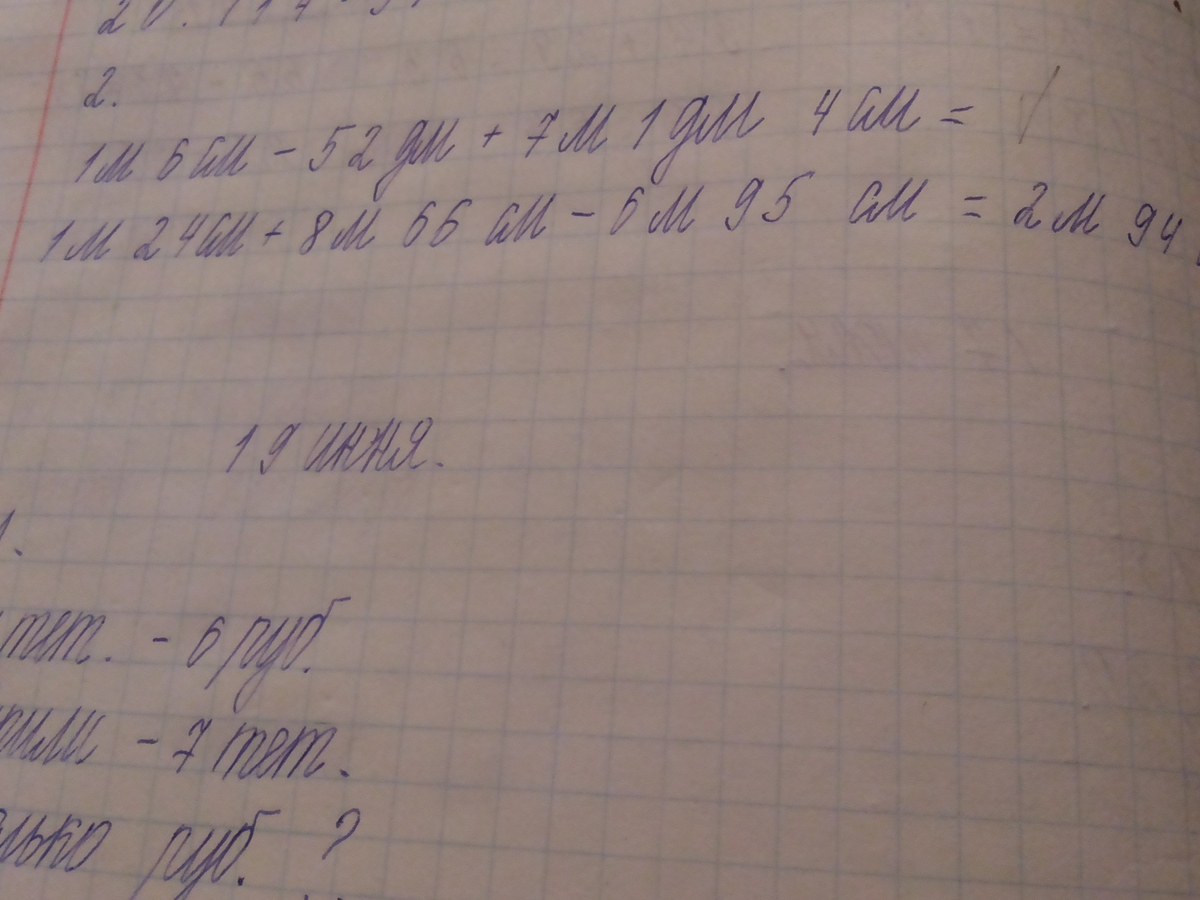 2.
1м 6 см - 52 дм + 7 м 1 дм 4 см =
1м 24 см + 8 м 66 см - 6 м 95 см = 2 м 94
19 июня.
1.
тет. - 6 руб.
- 7 тет.
руб. ?